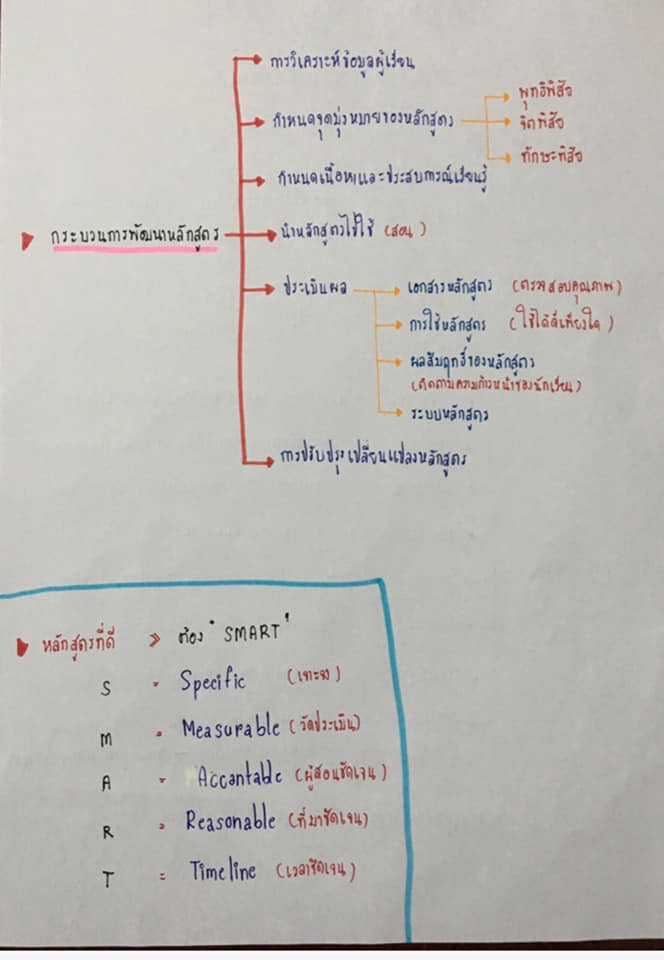 การวิเคราะห์ข้อมูลผู้เรียน
กำหนดจุดมุ่งหมายของหลักสูตร
พุทธิพิสัย
จิตพิสัย
ทักษะพิสัย
กำหนดเนื้อหาและประสบการณ์เรียนรู้
กระบวนการพัฒนาหลักสูตร
นำหลักสูตรไปใช้ (สอน)
ประเมินผล
เอกสารหลักสูตร (ตรวจสอบคุณภาพ)
การใช้หลักสูตร (ใช้ได้ดีเพียงใด)
ผลสัมฤทธิ์ของหลักสูตร
(ติดตามความก้าวหน้าของนักเรียน)
ระบบหลักสูตร
การปรับปรุงเปลี่ยนแปลงหลักสูตร
หลักสูตรที่ดี » ต้อง "SMART"
S = Specific (เจาะจง)
M = Measurable (วัดประเมิน)
A = Accantable (ผู้สอนชัดเจน)
R = Reasonable (ที่มาชัดเจน)
T = Timeline (เวลาชัดเจน)